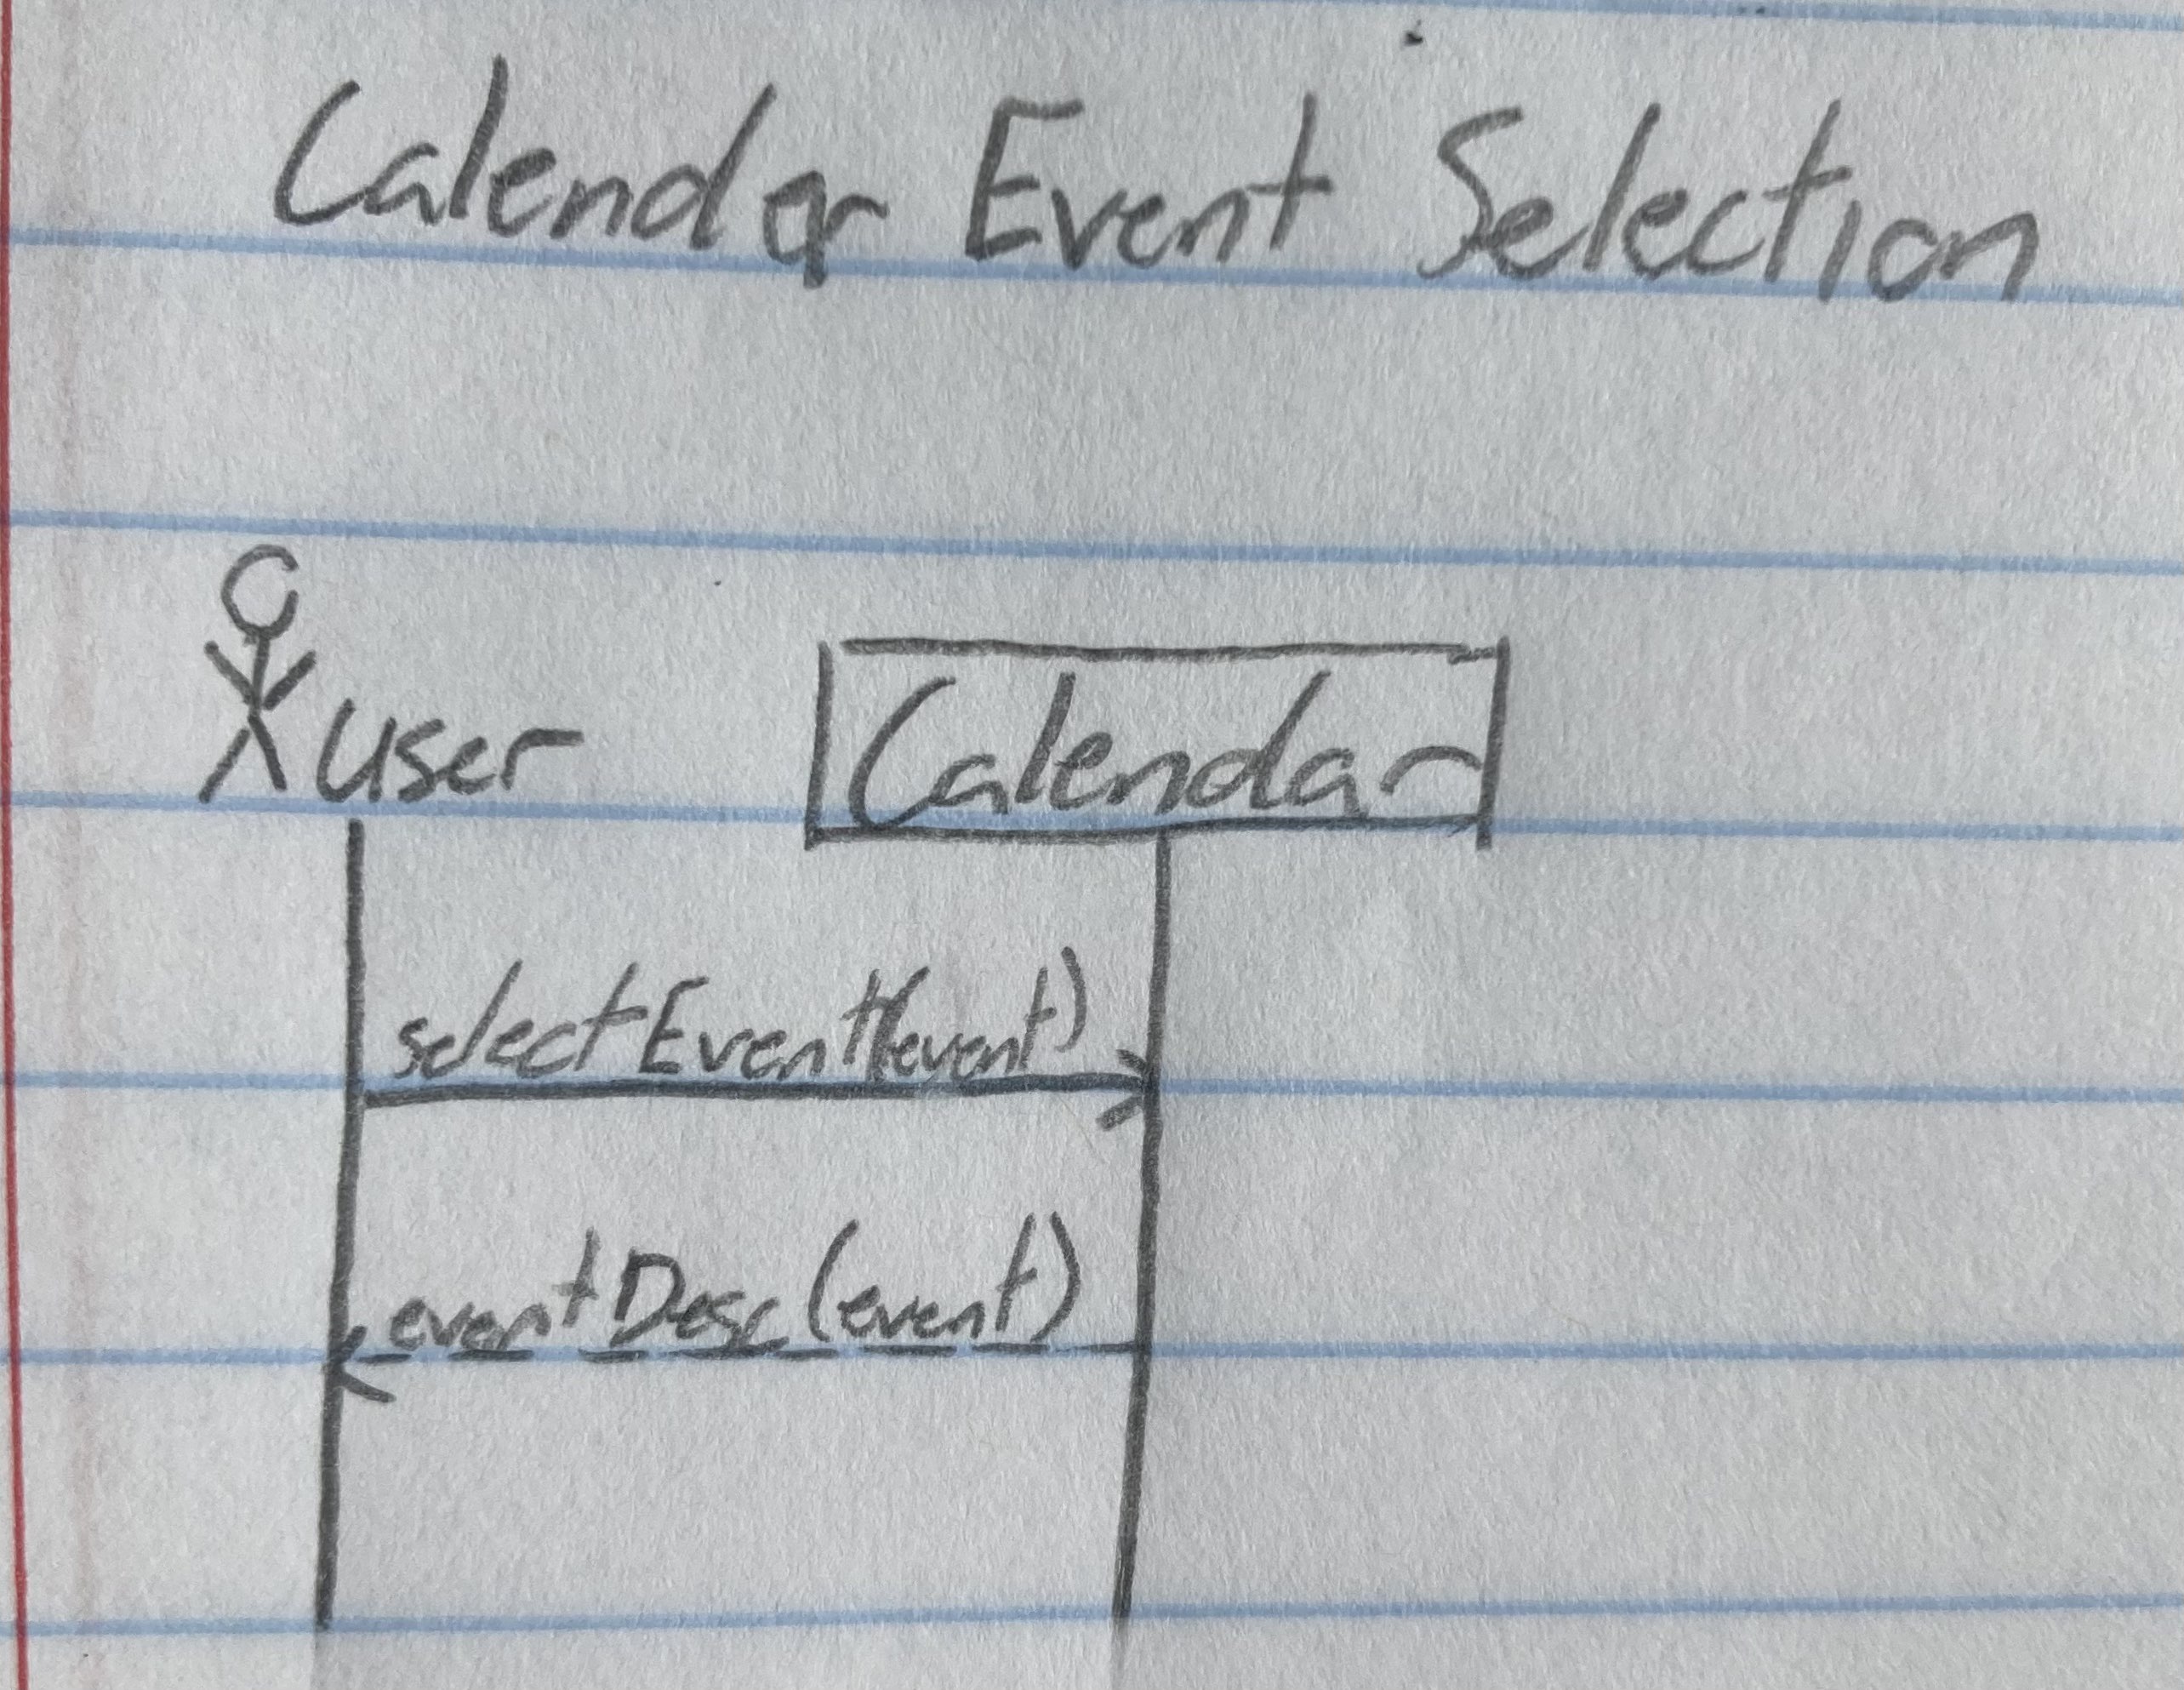 Calendar Event Selection
user Calendar
selectEvent(event)
eventDesc(event)